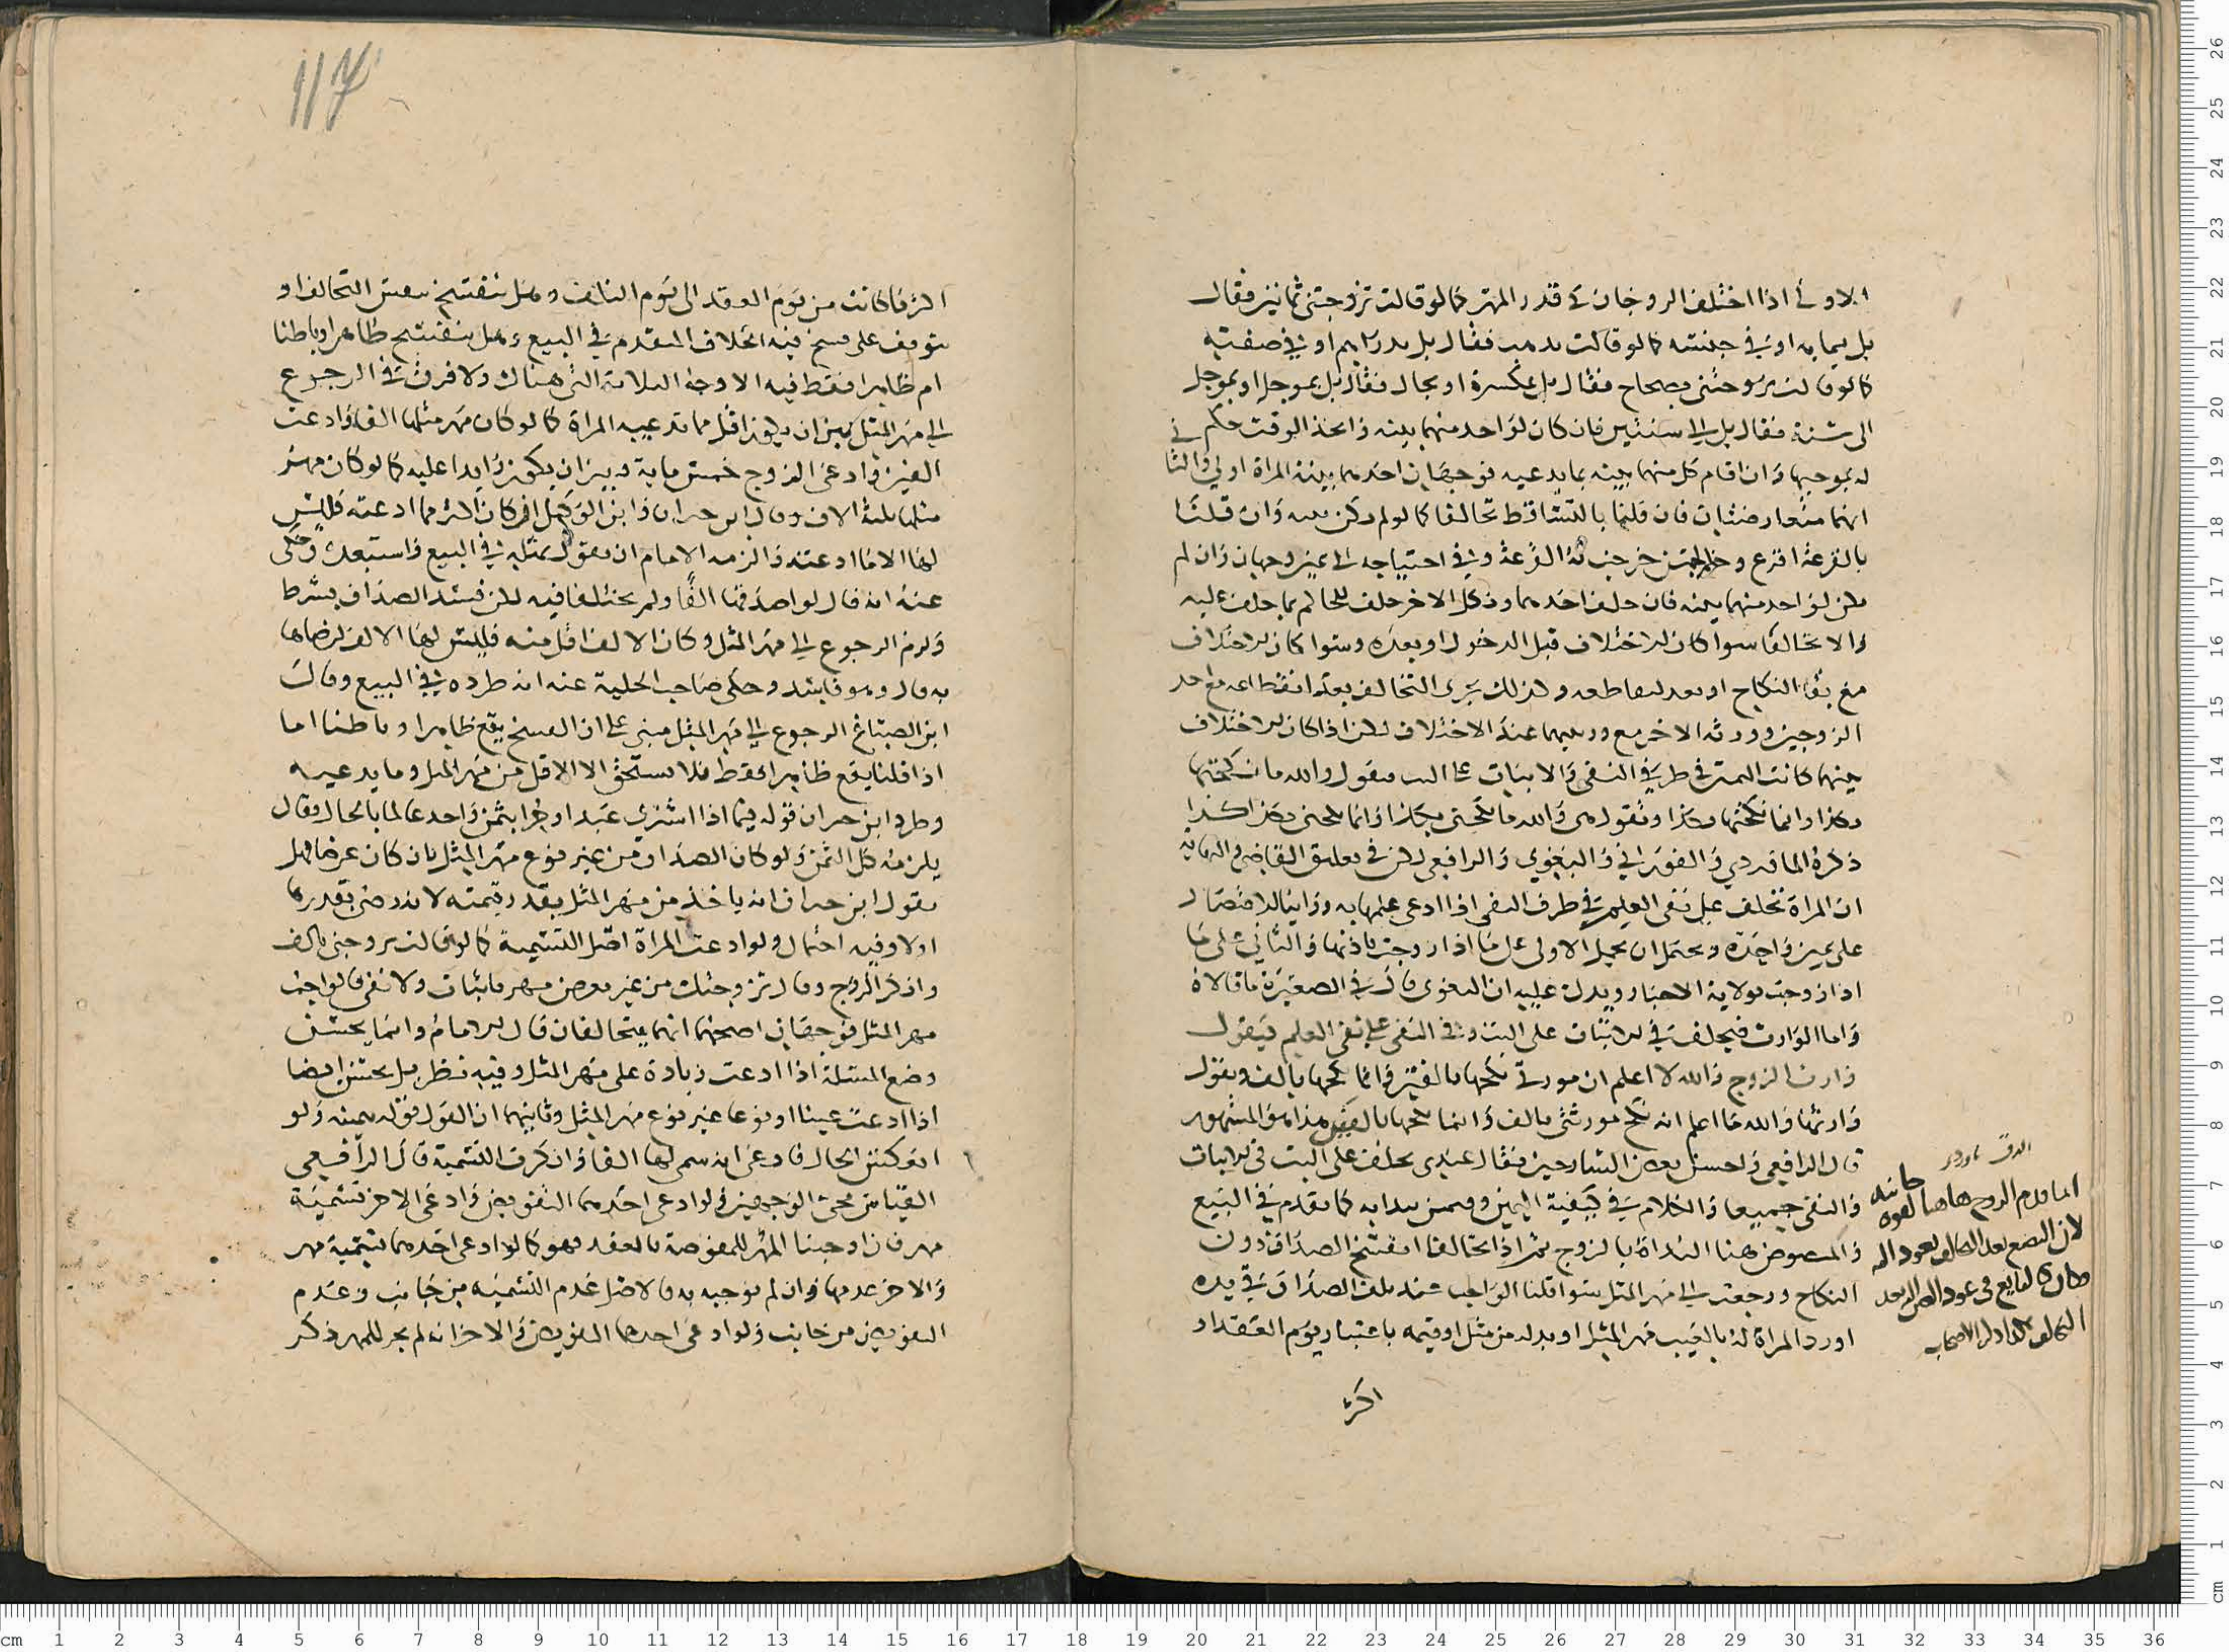 الاولى اذا اختلف الزوجان في قدر المهر كما لو قالت تزوجتني ثمانين فقال
بل بمايه او في جنسه كما لو قالت بدهب فقال بل بدراهم او في صفته
كما لو قالت تزوجتني بصحاح فقال بل بمكسرة او بحال فقال بل بموجل او بموجل
الى سنة فقال بل الى سنتين فان كان لواحد منهما بينه واتحد الوقت حكم
له بموجبها وان اقام كل منهما بينه بما يدعيه فوجهان احدهما بينة المراة اولى والثاني
انهما متعارضتان فان قلنا بالتساقط تحالفا كما لو لم تكن بينه وان قلنا
بالقرعة اقرع وهل لمن خرجت له القرعة وفي احتياجه الى يمين وجهان وان لم
يكن لواحد منهما بينه فان حلف احدهما ونكل الاخر حلف للحاكم بما حلف عليه
والا تحالفا سوا كان الاختلاف قبل الدخول او بعده وسوا كان الاختلاف
مع بقا النكاح او بعد انقطاعه وكذلك يجري التحالف بعد انقطاعه مع احد
الزوجين وورثه الاخر مع ورثتهما عند الاختلاف لكن اذا كان الاختلاف
بينهما كانت اليمين في طرفي النفي والاثبات على البت فيقول والله ما نكحتها
بكذا وانما نكحتها بكذا وتقول هي والله ما نكحني بكذا وانما نكحني بكذا كذا
ذكره الماوردي والفوراني والبغوي والرافعي لكن في تعليق القاضي والنهاية
ان المراة تحلف على نفي العلم في طرف النفي اذا ادعي علمها به واذا بنا الاقتصار
على يمين واحدة ويحتمل ان يحمل الاولى على ما اذا زوجت باذنها والثاني على ما
اذا زوجت بولاية الاجبار ويدل عليه ان البغوي قال في الصغيرة ما قالاه
واما الوارث فيحلف في الاثبات على البت وفي النفي على نفي العلم فيقول
وارث الزوج والله لا اعلم ان مورثي نكحها بالفين وانما نكحها بالف ويقول
وارثها والله ما اعلم انه نكح مورثتي بالف وانما نكحها بالفين هذا هو المشهور
قال الرافعي واحسن بعض الشارحين فقال عندي يحلف على البت في الاثبات
والنفي جميعا والكلام في كيفية اليمين وفيمن يبدا به كما تقدم في البيع
والمنصوص هنا البداة بالزوج ثم اذا تحالفا انفسخ الصداق دون
النكاح ورجعت الى مهر المثل سوا قلنا الواجب عند تلف الصداق في يده
او رد المراة له بالعيب مهر المثل او بدله من مثل او قيمه باعتبار يوم العقد او
اكثر
انما قدم الزوج هاهنا لقوة جانبه
لان البضع بعد التحالف يعود اليه
فكان كالبايع في عود المبيع اليه بعد
التحالف كذا قال الاصحاب
117
اكثر ما كانت من يوم العقد الى يوم التلف وهل ينفسخ بنفس التحالف او
يتوقف على فسخ فيه الخلاف المتقدم في البيع وهل ينفسخ ظاهرا وباطنا
ام ظاهرا فقط فيه الاوجه الثلاثة التي هناك ولا فرق في الرجوع
الى مهر المثل بين ان يكون اقل مما تدعيه المراة كما لو كان مهر مثلها الفا وادعت
الفين وادعى الزوج خمس ماية وبين ان يكون زايدا عليه كما لو كان مهر
مثلها ثلثة الاف وقال ابن خيران وابن الوكيل ان كان اكثر مما ادعته فليس
لها الا ما ادعته والزمه الامام ان يقول بمثله في البيع واستبعده وحكى
عنه انه قال لو اصدقها الفا ولم يختلفا فيه لكن فسد الصداق بشرط
ولزم الرجوع الى مهر المثل وكان الالف اقل منه فليس لها الا الف لرضاها
به قال وهو فاسد وحكى صاحب الحلية عنه انه طرده في البيع وقال
ابن الصباغ الرجوع الى مهر المثل مبني على ان الفسخ يقع ظاهرا وباطنا اما
اذا قلنا يقع ظاهرا فقط فلا يستحق الا الاقل من مهر المثل وما يدعيه
وطرد ابن خيران قوله فيما اذا اشترى عبدا او حرا بثمن واحد عالما بالحال وقال
يلزمه كل الثمن ولو كان الصداق من غير نوع مهر المثل بان كان عرضا فهل
يقول ابن خيران انه ياخذ من مهر المثل بقدر قيمته لانه رضى بقدرها
اولا وفيه احتمال ولو ادعت المراة اصل التسمية كما لو قالت تزوجني بالف
وانكر الزوج وقال تزوجتك من غير تعرض مهر باثبات ولا نفي فالواجب
مهر المثل فوجهان اصحهما انهما يتحالفان قال الامام وانما يحسن
وضع المسئلة اذا ادعت زيادة على مهر المثل وفيه نظر بل يحسن ايضا
اذا ادعت عينا او نوعا غير نوع مهر المثل وثانيهما ان القول قوله بيمينه ولو
انعكس الحال فادعى انه سمى لها الفا وانكرت التسمية قال الرافعي
القياس مجى الوجهين ولو ادعى احدهما التفويض وادعى الاخر تسمية
مهر فان اوجبنا المهر للمفوضة بالعقد فهو كما لو ادعى احدهما تسمية مهر
والاخر عدمها وان لم نوجبه به فالاصل عدم التسمية من جانب وعدم
التفويض من جانب ولو ادعى احدهما التفويض والاخر انه لم يجر للمهر ذكر